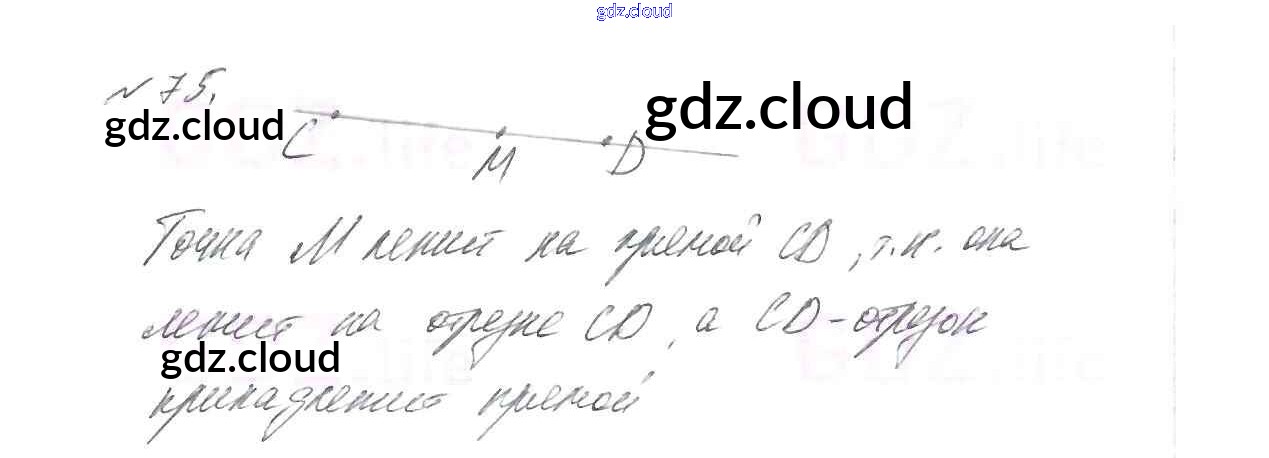 gdz.cloud
№ 75.
gdz.cloud
gdz.cloud
C
M
D
Точка M лежит на прямой CD, т.к. она
лежит на отрезке CD, а CD-отрезок
gdz.cloud
принадлежит прямой